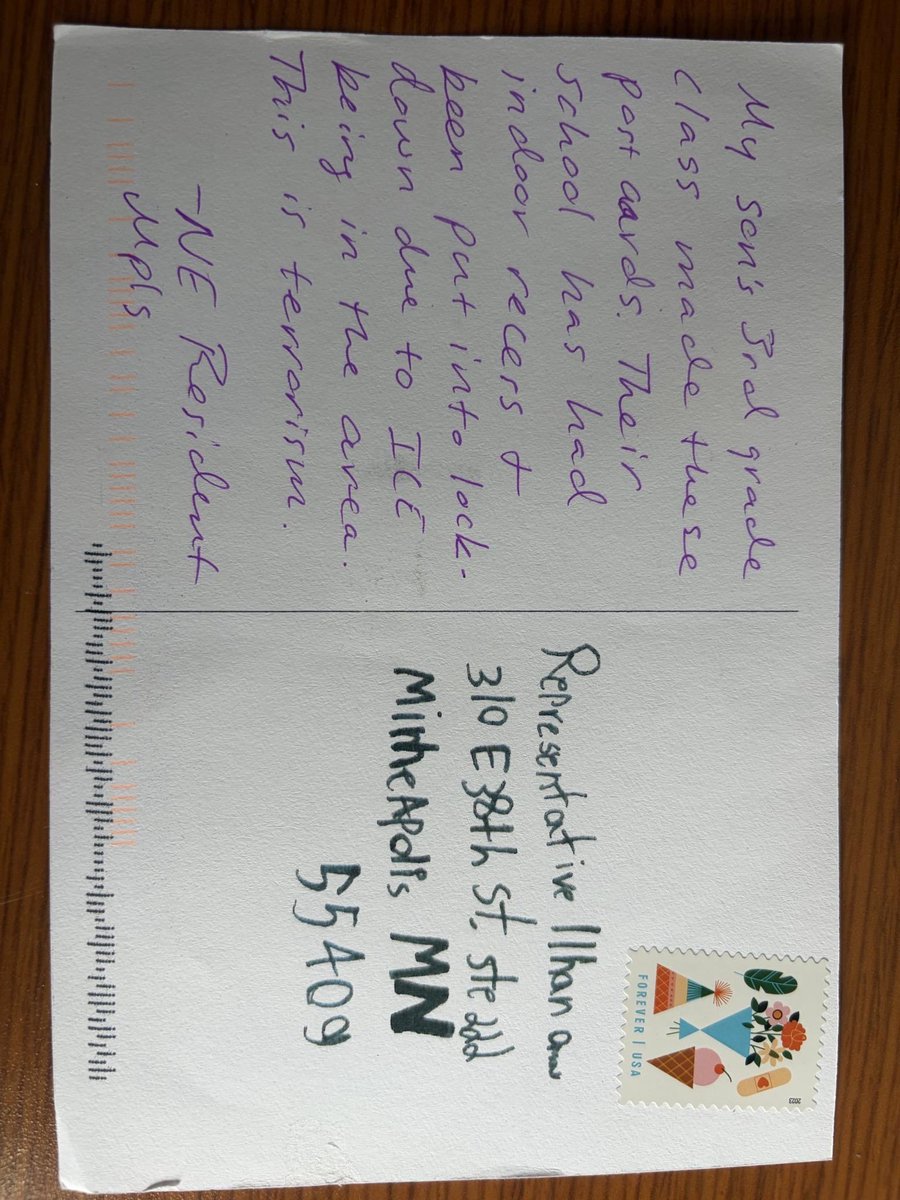 My son's 3rd grade
class made these
post cards. Their
school has had
indoor recess &
been put into lock-
down due to ICE
being in the area.
This is terrorism.
-NE Resident
Mpls
FOREVER | USA
2023
Representative Ilhan omar
310 E 38th St. ste 222
MinneApolis MN
55409